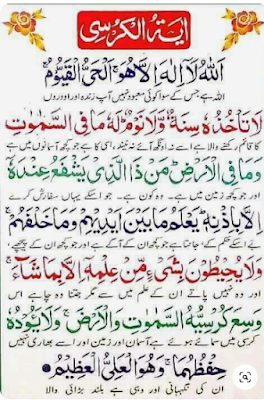 آیۃ الکرسی
اَللّٰهُ لَاۤ اِلٰهَ اِلَّا هُوَۚ اَلْحَیُّ الْقَیُّوْمُ ۚ
اللہ ہے جس کے سوا کوئی معبود نہیں آپ زندہ اور اوروں
لَا تَاْخُذُهٗ سِنَةٌ وَّلَا نَوْمٌ لَهٗ مَا فِی السَّمٰوٰتِ
کا قائم رکھنے والا ہے اسے نہ اونگھ آئے نہ نیند، اسی کا ہے جو کچھ آسمانوں میں ہے
وَمَا فِی الْاَرْضِ مَنْ ذَا الَّذِیْ یَشْفَعُ عِنْدَهٗۤ
اور جو کچھ زمین میں ہے۔ وہ کون ہے۔ جو اسکے یہاں سفارش کرے
اِلَّا بِاِذْنِهٖ یَعْلَمُ مَا بَیْنَ اَیْدِیْهِمْ وَمَا خَلْفَهُمْ ۚ
بے اسکے حکم کے، جانتا ہے جو کچھ ان کے آگے ہے اور جو کچھ ان کے پیچھے،
وَلَا یُحِیْطُوْنَ بِشَیْءٍ مِّنْ عِلْمِهٖۤ اِلَّا بِمَا شَآءَ ۚ
اور وہ نہیں پاتے ان کے علم میں سے مگر جتنا وہ چاہے اس
وَسِعَ كُرْسِیُّهُ السَّمٰوٰتِ وَالْاَرْضَ ۚ وَلَا یَـُٔوْدُهٗ
کرسی میں سمائے ہوئے ہے آسمان اور زمین اور اسے بھاری نہیں
حِفْظُهُمَا ۚ وَهُوَ الْعَلِیُّ الْعَظِیْمُ
ان کی نگہبانی اور وہی ہے بلند بڑائی والا